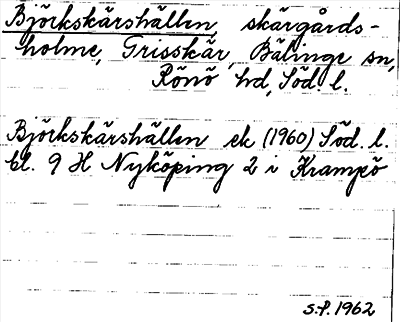 Björkskärshällen, skärgårds-
holme, Grisskär, Bälinge sn,
Rönö hd, Söd. l.
Björkskärshällen ek (1960) Söd. l.
bl. 9 H Nyköping 2 i Krampö
S.P. 1962